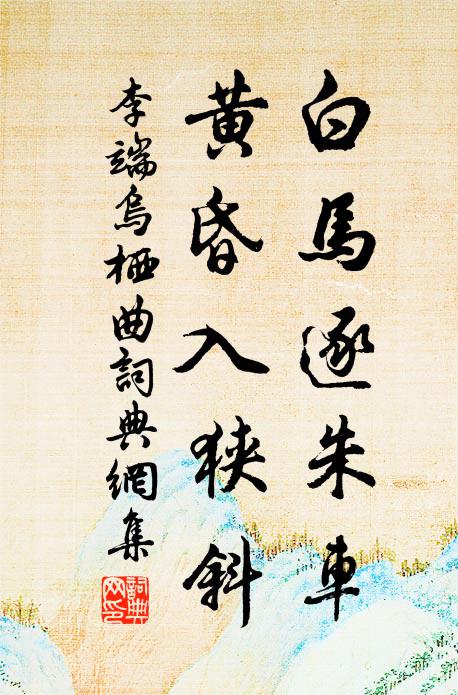 白馬逐朱車
黃昏入狹斜
李端烏栖曲詞典網集
詞典